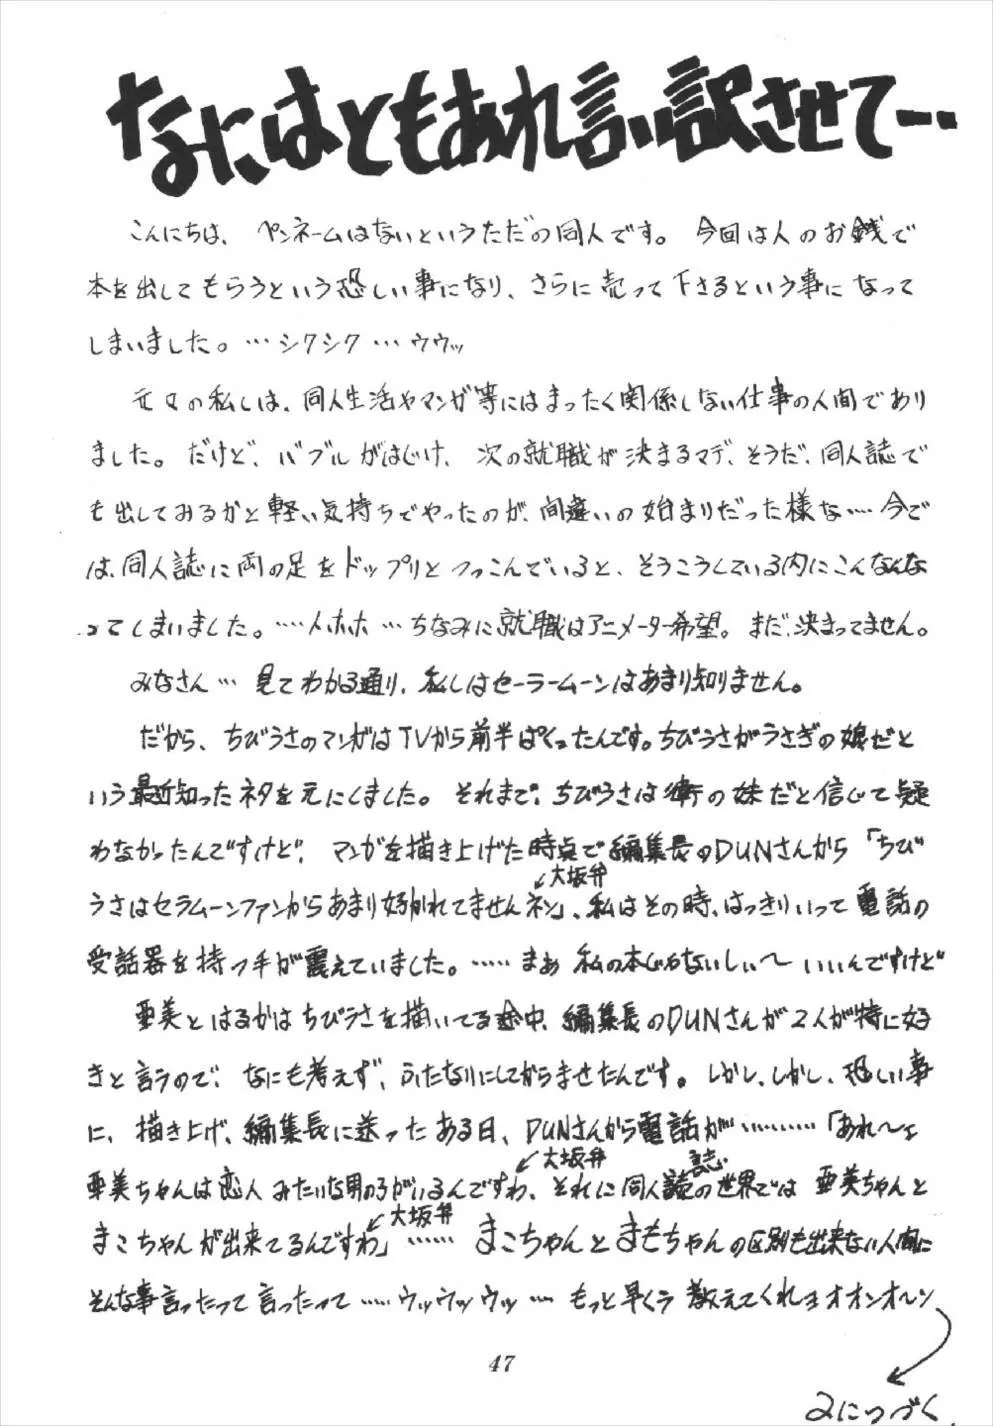 なにはともあれ言い訳させて…
こんにちは、ペンネームはないというただの同人です。今回は人のお銭で
本を出してもらうという恐しい事になり、さらに売って下さるという事になって
しまいました。…シクシク…ウウッ
元々の私しは、同人生活やマンガ等にはまったく関係しない仕事の人間であり
ました。だけど、バブルがはじけ、次の就職が決まるマデ、そうだ、同人誌で
も出してみるかと軽い気持ちでやったのが、間違いの始まりだった様な…今で
は、同人誌に両の足をドップリとつっこんでいると、そうこうしている内にこんなんな
ってしまいました。……トホホ…ちなみに就職はアニメーター希望。まだ、決まってません。
みなさん…見てわかる通り、私しはセーラームーンはあまり知りません。
だから、ちびうさのマンガはTVから前半ぱくったんです。ちびうさがうさぎの娘だと
いう最近知ったネタを元にしました。それまで、ちびうさは衛の妹だと信じて疑
わなかったんですけど、マンガを描き上げた時点で編集長のDUNさんから「ちび
大坂弁
うさはセラムーンファンからあまり好かれてませんネン」、私はその時、はっきりいって電話の
受話器を持つ手が震えていました。……まぁ私の本じゃないしぃ〜いいんですけど
亜美とはるかはちびうさを描いてる途中、編集長のDUNさんが2人が特に好
きと言うので、なにも考えず、ふたなりにしてからませたんです。しかし、しかし、恐しい事
に、描き上げ、編集長に送ったある日、DUNさんから電話が…………「あれ〜ェ
大坂弁 誌
亜美ちゃんは恋人みたいな男の子がいるんですわ、それに同人の世界では亜美ちゃんと
大坂弁
まこちゃんが出来てるんですわ」……まこちゃんとまもちゃんの区別も出来ない人間に
そんな事言ったって言ったって……ウッウッウッ…もっと早くう教えてくれョオオンオ〜ン
47
2につづく